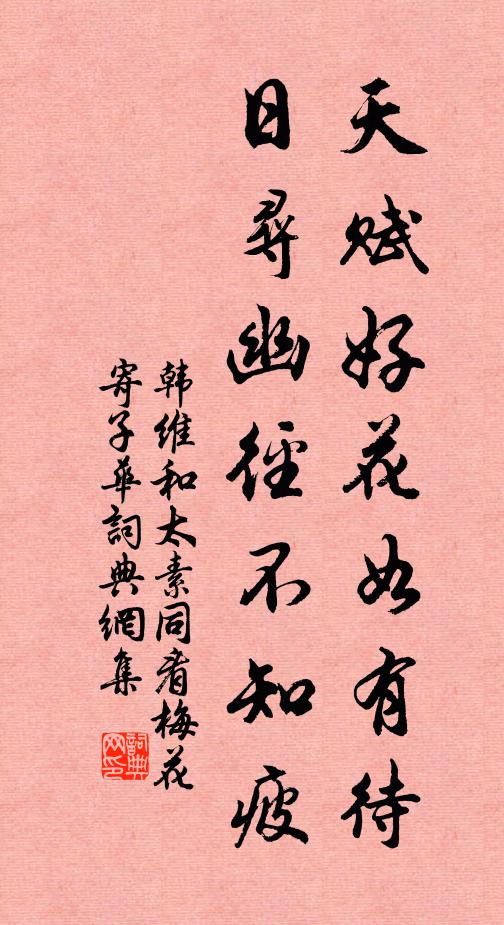 天赋好花如有待
日尋幽径不知疲
韩维和太素同看梅花
寄子华詞典網集
詞典
网印